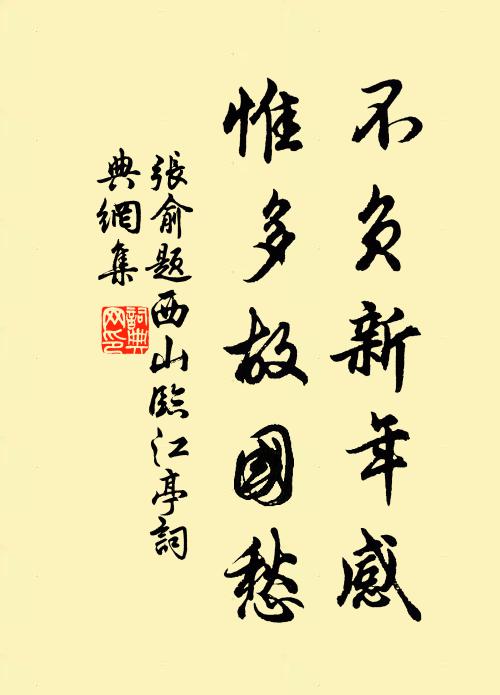 不負新年感
惟多故國愁
張俞題西山臨江亭詞
典網集
詞典網印